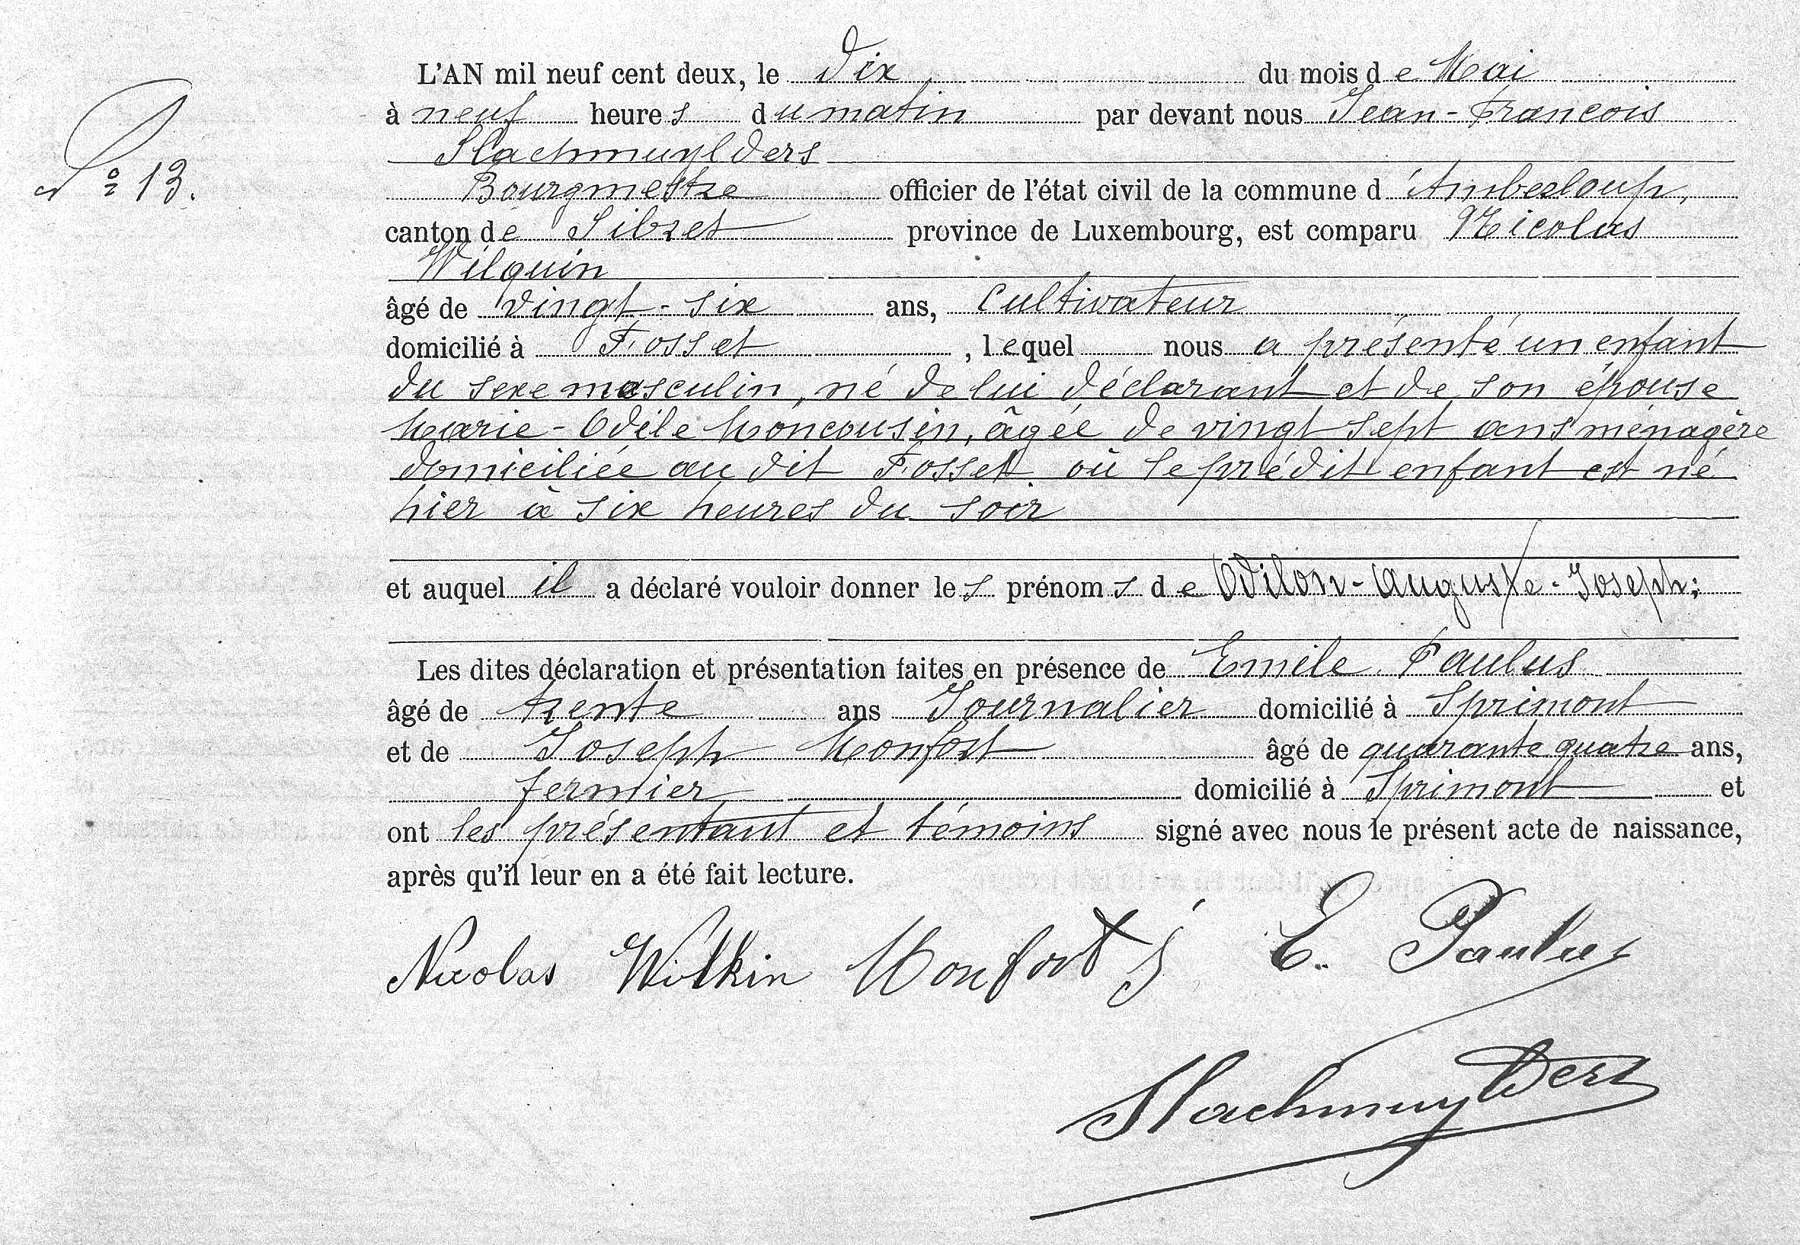 L'AN mil neuf cent deux, le dix du mois de Mai
à neuf heures du matin par devant nous Jean-François
Slachmuylders
N° 13.
Bourgmestre officier de l'état civil de la commune d'Amberloup,
canton de Sibret province de Luxembourg, est comparu Nicolas
Wilquin
âgé de vingt-six ans, cultivateur
domicilié à Fosset, lequel nous a présenté un enfant
du sexe masculin, né de lui déclarant et de son épouse
Marie-Odile Moncousin, âgée de vingt sept ans ménagère
domiciliée au dit Fosset où le prédit enfant est né
hier à six heures du soir
et auquel il a déclaré vouloir donner les prénoms de Odilon-Auguste-Joseph;
Les dites déclaration et présentation faites en présence de Emile Paulus
âgé de trente ans Journalier domicilié à Sprimont
et de Joseph Monfort âgé de quarante quatre ans,
fermier domicilié à Sprimont et
ont les présentant et témoins signé avec nous le présent acte de naissance,
après qu'il leur en a été fait lecture.
Nicolas Wilkin Monfort J E. Paulus
Slachmuylders